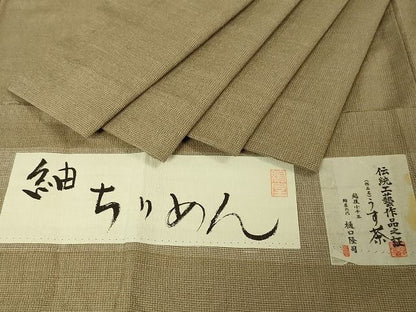 紬ちりめん
伝統工藝作品之証
うす茶
越後小千谷
樋口隆司